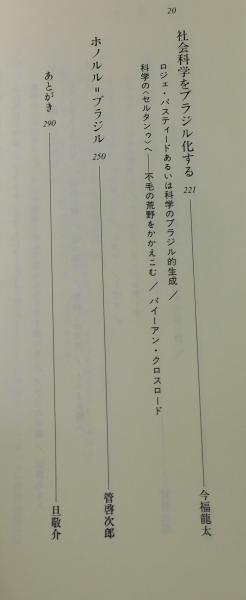 20
社会科学をブラジル化する 221 ——— 今福龍太
ロジェ・バスティードあるいは科学のブラジル的生成／
科学の〈セルタンゥ〉へ——不毛の荒野をかかえこむ／バイーアン・クロスロード
ホノルル＝ブラジル 250 ——— 管啓次郎
あとがき 290 ——— 旦敬介